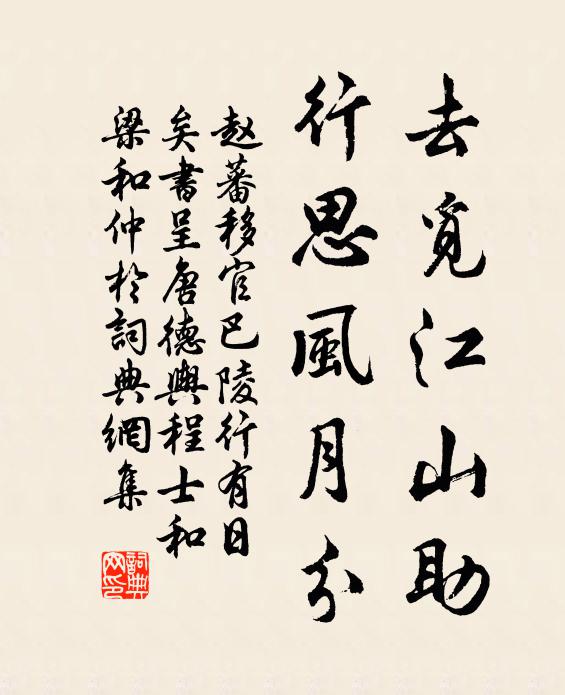 去覓江山助
行思風月分
赵蕃移官巴陵行有日
矣書呈唐德輿程士和
梁和仲於詞典網集
詞典网印